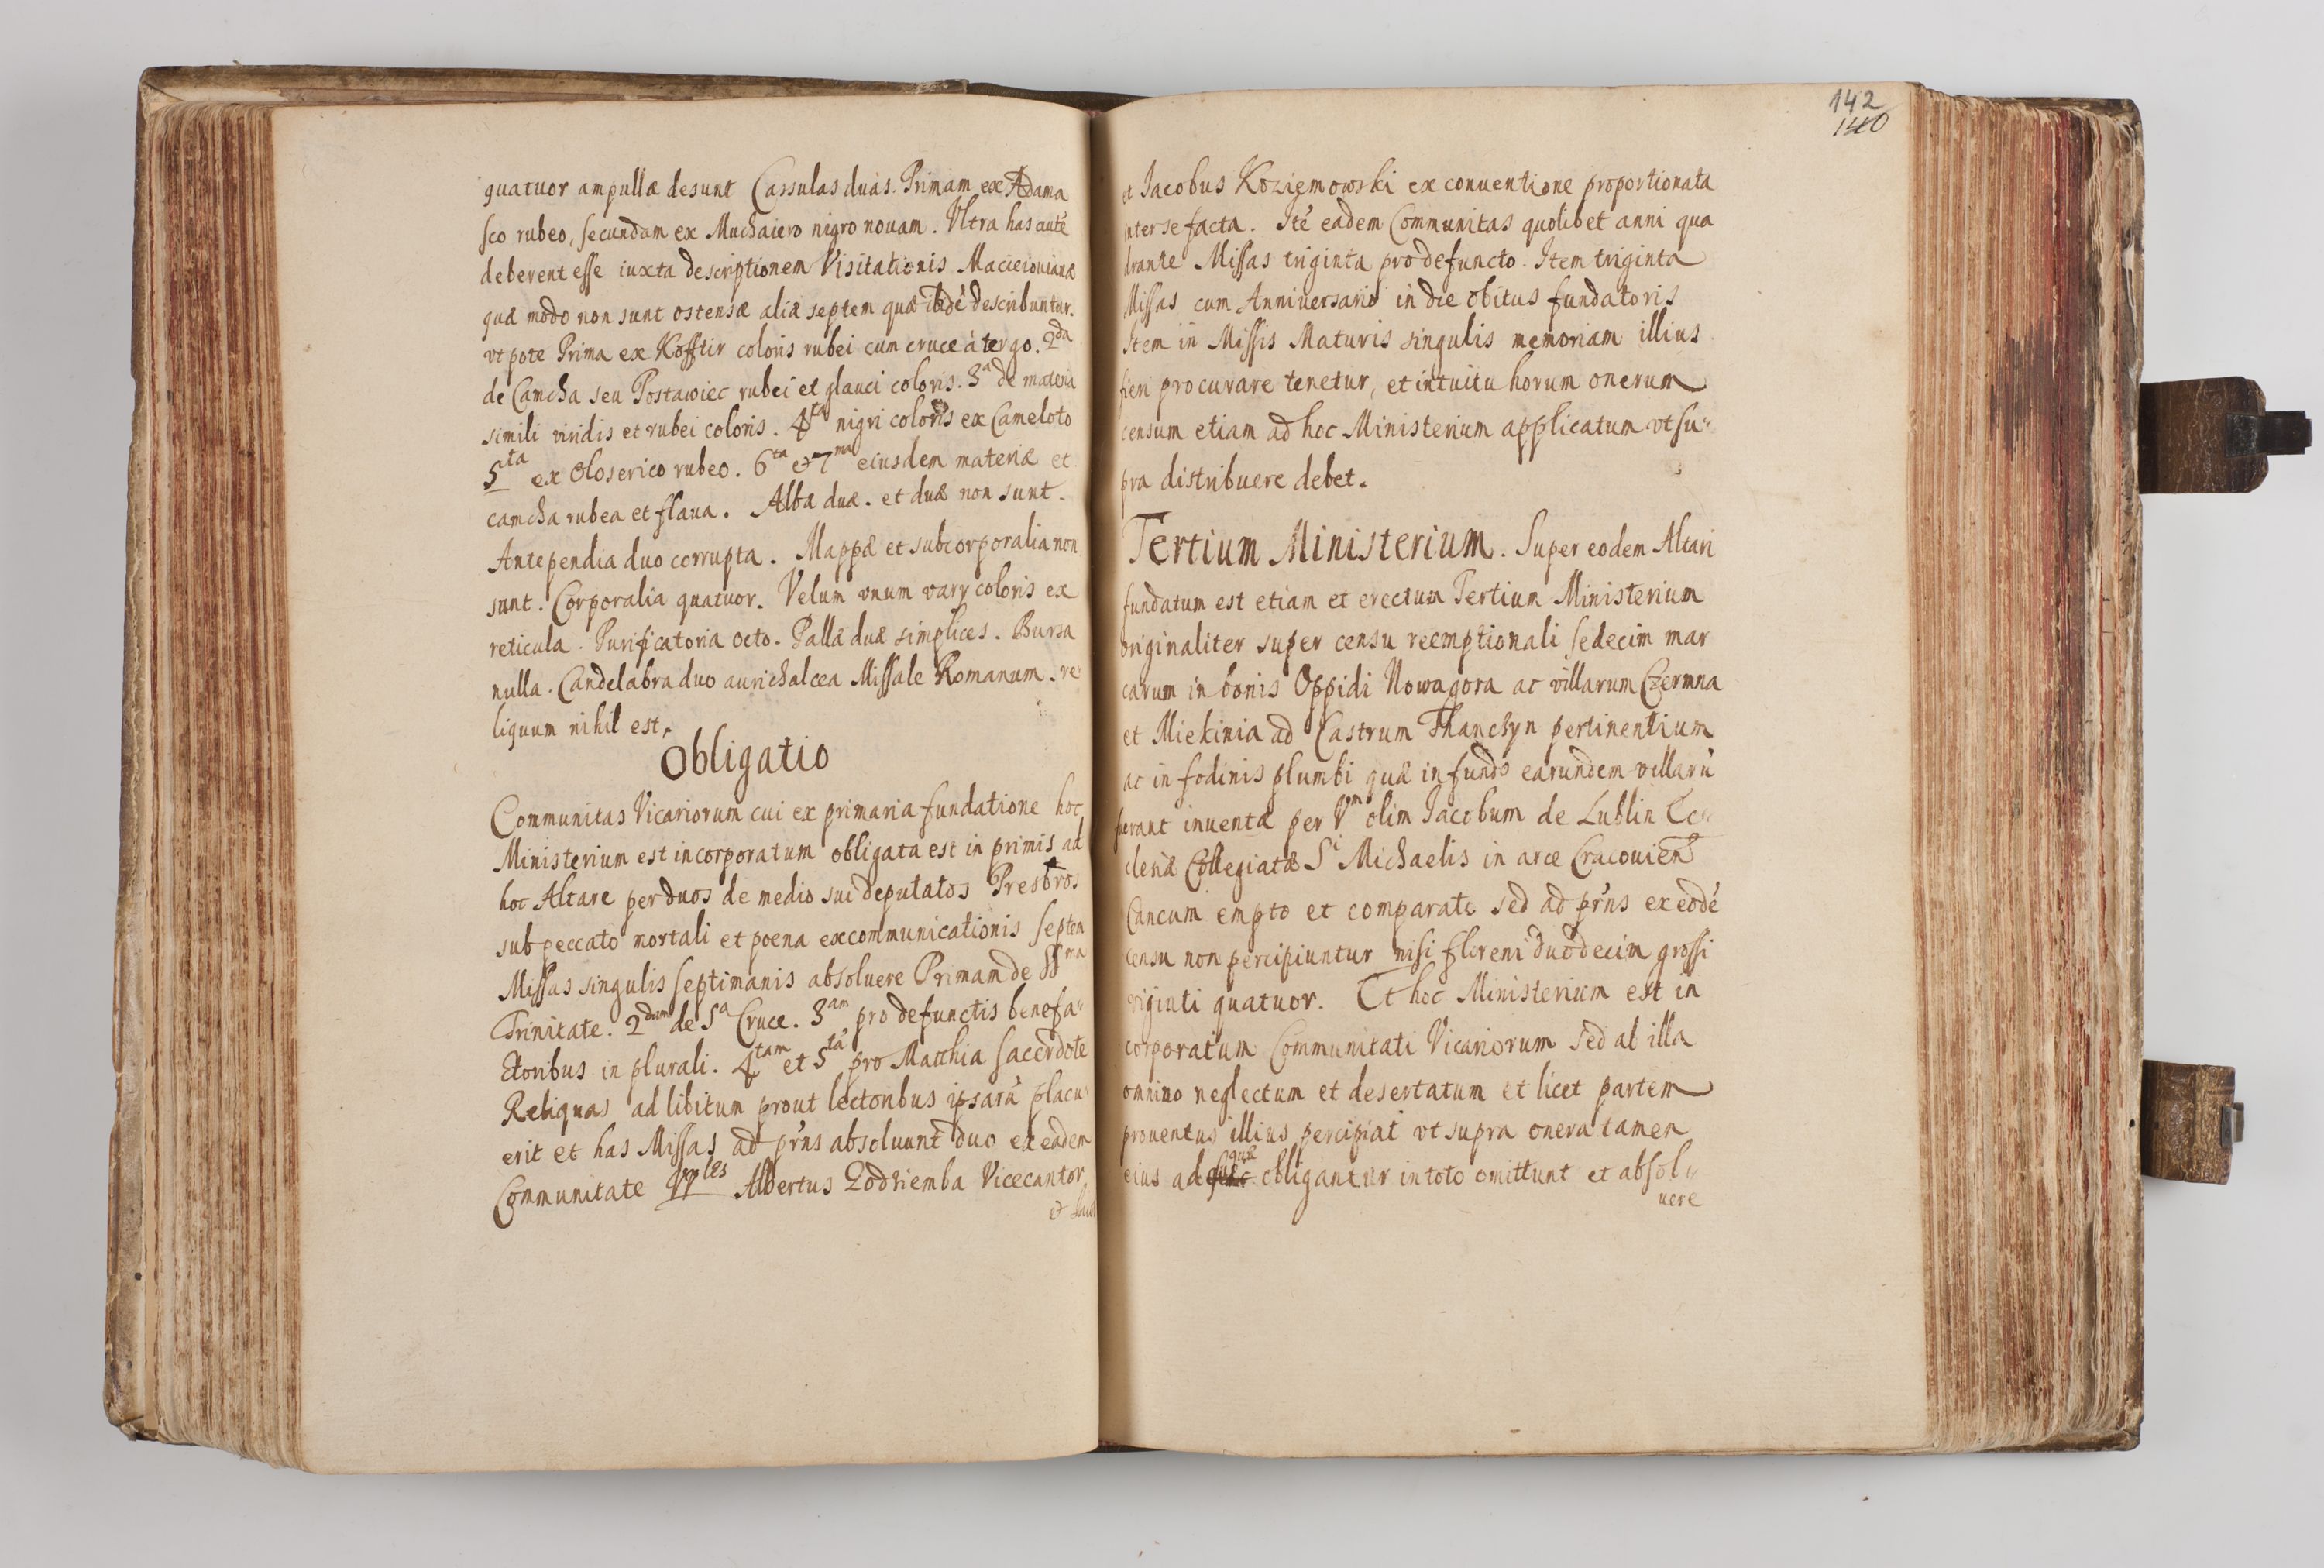 quatuor ampullæ desunt Cassulas duas. Primam ex Adama
sco rubeo, secundam ex Muchaiero nigro nouam. Vltra has autē
deberent esse iuxta descriptionem Visitationis Macieiouianæ
quæ modo non sunt ostensæ aliæ septem quæ ibidē describuntur.
vt pote Prima ex Kofftir coloris rubei cum cruce à tergo. 2da
de Camcha seu Postawiec rubei et glauci coloris. 3a de materia
simili viridis et rubei coloris. 4ta nigri coloris ex Cameloto
5ta ex Oloserico rubeo. 6ta et 7ma eiusdem materiæ et
camcha rubea et flaua. Albæ duæ. et duæ non sunt.
Antependia duo corrupta. Mappæ et subcorporalia non
sunt. Corporalia quatuor. Velum vnum vary coloris ex
reticula. Purificatoria octo. Pallæ duæ simplices. Bursa
nulla. Candelabra duo aurichalcea Missale Romanum. re
liquum nihil est.
Obligatio
Communitas Vicariorum cui ex primaria fundatione hoc
Ministerium est incorporatum obligata est in primis ad
hoc Altare per duos de medio sui deputatos Presbros
sub peccato mortali et poena excommunicationis septem
Missas singulis septimanis absoluere Primam de SSma
Trinitate. 2dam de Sa Cruce. 3am pro defunctis benefa-
ctoribus in plurali. 4tam et 5tā pro Matthia sacerdote
Reliquas ad libitum prout lectoribus ipsarū placu-
erit et has Missas ad prn̄s absoluunt duo ex eadem
Communitate Vbles Albertus Zodziemba Vicecantor
et Iacob
142
140
et Jacobus Koziemowski ex conuentione proportionata
inter se facta. Itē eadem Communitas quolibet anni qua
drante Missas triginta pro defuncto. Item triginta
Missas cum Anniuersario in die obitus fundatoris
Item in Missis Maturis singulis memoriam illius
fieri procurare tenetur, et intuitu horum onerum
censum etiam ad hoc Ministerium applicatum vt su-
pra distribuere debet.
Tertium Ministerium. Super eodem Altari
fundatum est etiam et erectum Tertium Ministerium
originaliter super censu reemptionali sedecim mar
carum in bonis Oppidi Nowagora ac villarum Czermna
et Miekinia ad Castrum Thanczyn pertinentium
ac in fodinis plumbi quæ in fundo earundem villarū
fuerant inuentæ per Vm olim Jacobum de Lublin Ec-
clesiæ Collegiatæ Si Michaelis in arce Cracouien̄
Cancum empto et comparato sed ad prn̄s ex eodē
censu non percipiuntur nisi floreni duodecim grossi
viginti quatuor. Et hoc Ministerium est in
corporatum Communitati Vicariorum sed ab illa
omnino neglectum et desertatum et licet partem
prouentus illius percipiat vt supra onera tamen
eius ad quæ obligantur in toto omittunt et absol-
uere